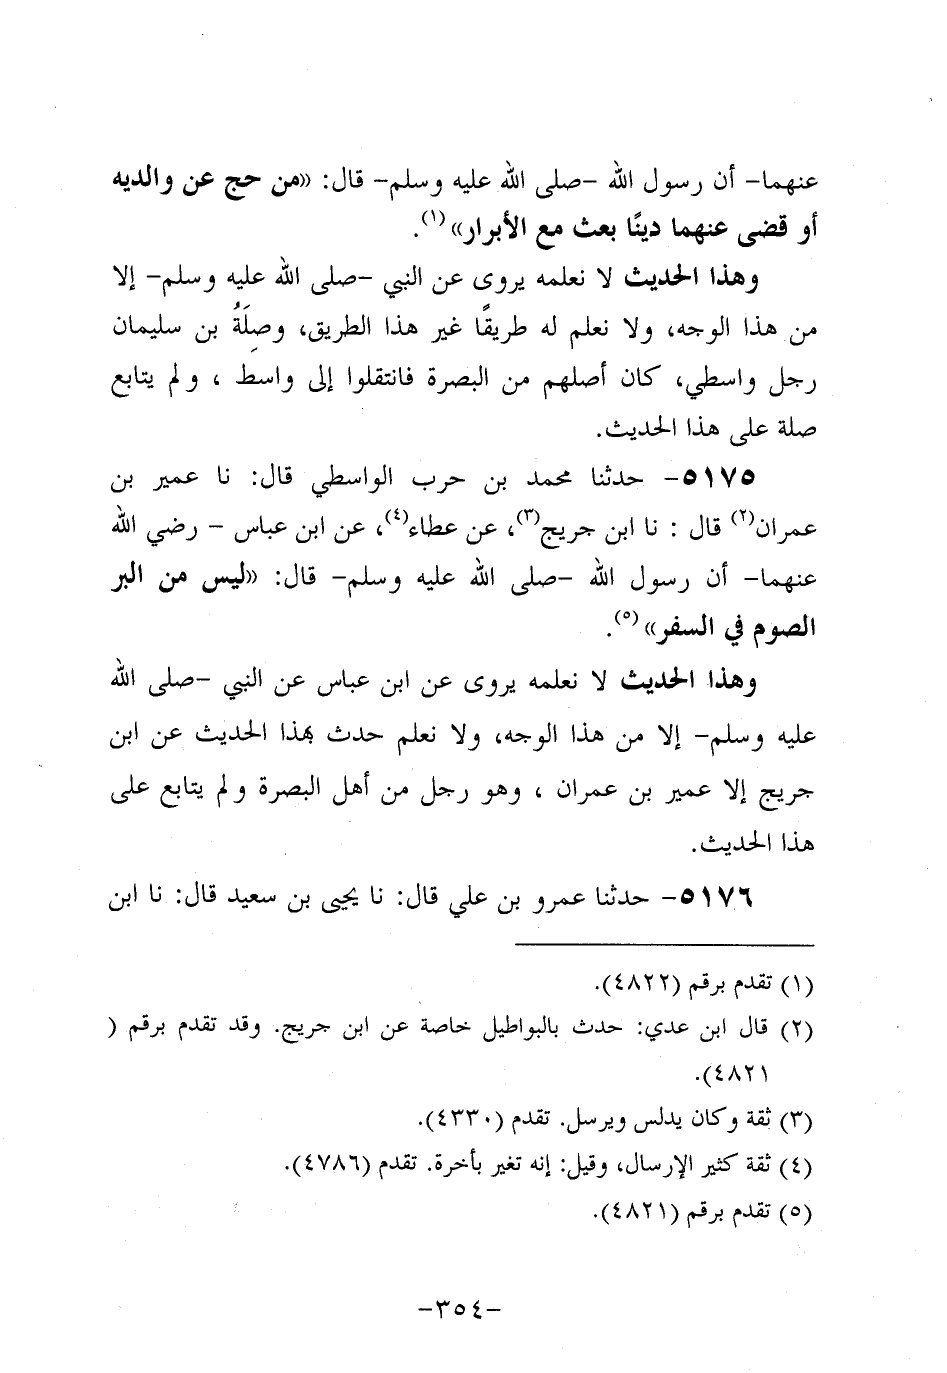 عنهما– أن رسول الله –صلى الله عليه وسلم– قال: «من حج عن والديه
أو قضى عنهما دينًا بعث مع الأبرار»(١).
وهذا الحديث لا نعلمه يروى عن النبي –صلى الله عليه وسلم– إلا
من هذا الوجه، ولا نعلم له طريقًا غير هذا الطريق، وصِلَةُ بن سليمان
رجل واسطي، كان أصلهم من البصرة فانتقلوا إلى واسط ، ولم يتابع
صلة على هذا الحديث.
٥١٧٥– حدثنا محمد بن حرب الواسطي قال: نا عمير بن
عمران(٢) قال : نا ابن جريج(٣)، عن عطاء(٤)، عن ابن عباس – رضي الله
عنهما– أن رسول الله –صلى الله عليه وسلم– قال: «ليس من البر
الصوم في السفر»(٥).
وهذا الحديث لا نعلمه يروى عن ابن عباس عن النبي –صلى الله
عليه وسلم– إلا من هذا الوجه، ولا نعلم حدث بهذا الحديث عن ابن
جريج إلا عمير بن عمران ، وهو رجل من أهل البصرة ولم يتابع على
هذا الحديث.
٥١٧٦– حدثنا عمرو بن علي قال: نا يحيى بن سعيد قال: نا ابن
(١) تقدم برقم (٤٨٢٢).
(٢) قال ابن عدي: حدث بالبواطيل خاصة عن ابن جريج. وقد تقدم برقم (
٤٨٢١).
(٣) ثقة وكان يدلس ويرسل. تقدم (٤٣٣٠).
(٤) ثقة كثير الإرسال، وقيل: إنه تغير بأخرة. تقدم (٤٧٨٦).
(٥) تقدم برقم (٤٨٢١).
–٣٥٤–